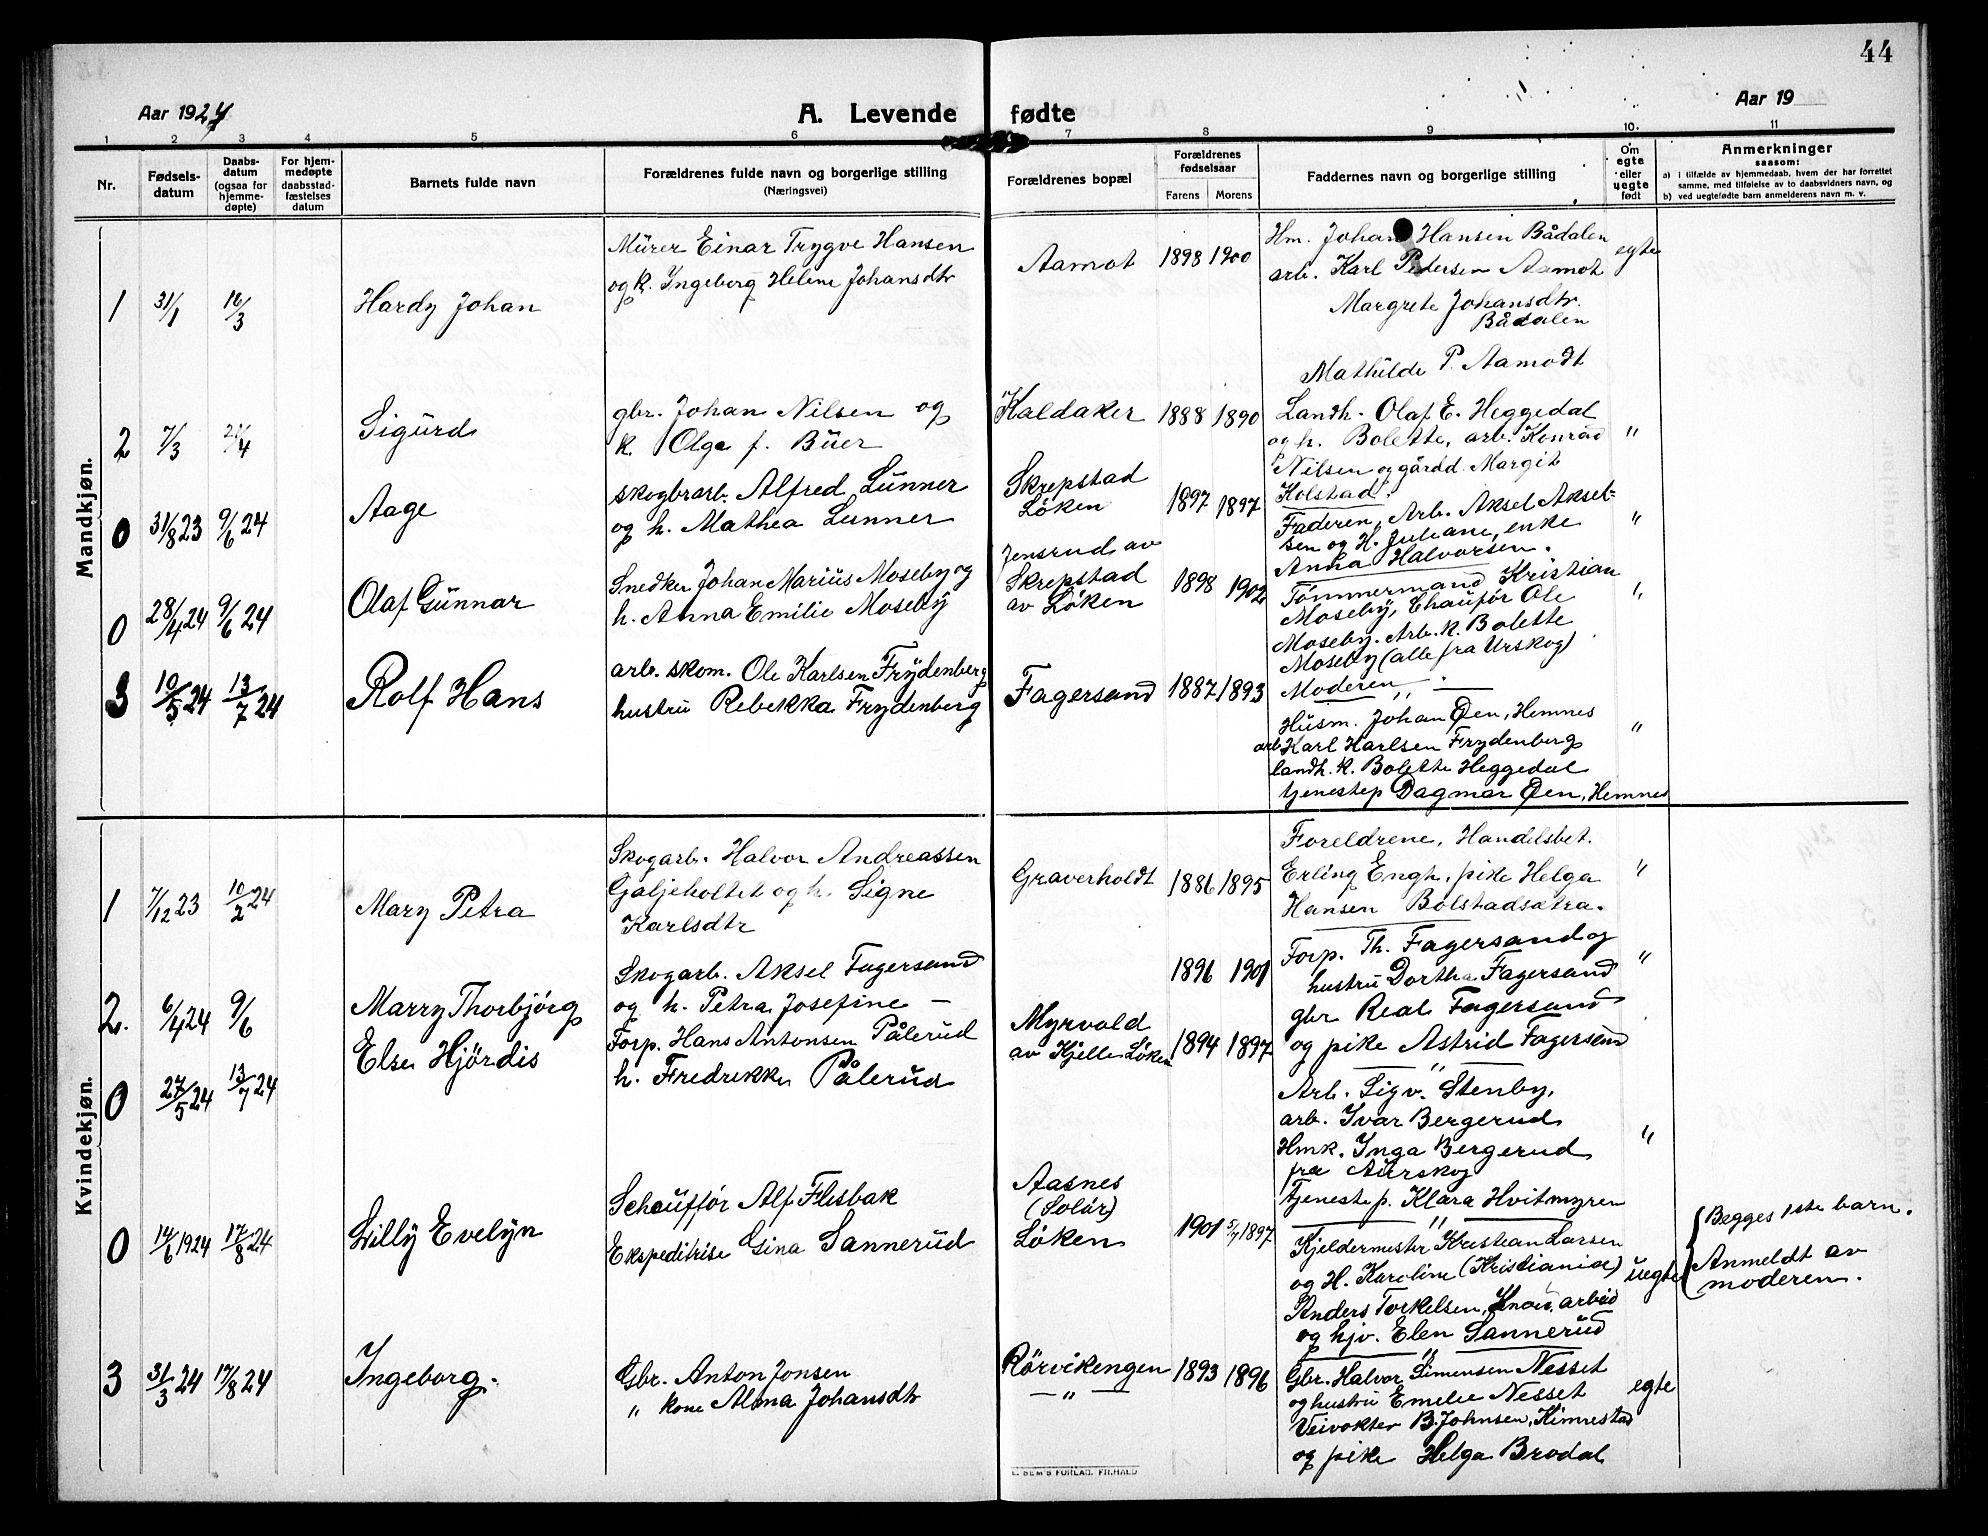 44
Aar 1924
A. Levende fødte
Aar 19
1 2 3 4 5 6 7 8 9 10. 11
Nr.
Fødsels-
datum
Daabs-
datum
(ogsaa for
hjemme-
døpte)
For hjem-
medøpte
daabsstad-
fæstelses
datum
Barnets fulde navn
Forældrenes fulde navn og borgerlige stilling
(Næringsvei)
Forældrenes bopæl
Forældrenes
fødselsaar
Farens Morens
Faddernes navn og borgerlige stilling
Om
egte
eller
uegte
født
Anmerkninger
saasom:
a) i tilfælde av hjemmedaab, hvem der har forrettet
samme, med tilføielse av to daabsvidners navn, og
b) ved uegtefødte barn anmelderens navn m. v.
Mandkjøn.
1 31/1 16/3 Hardy Johan
Mürer Einar Trygve Hansen
og k. Ingeborg Helene Johansdtr
Aamot 1898 1900
Hm. Johan Hansen Bådalen
arb. Karl Pedersen Aamot
Margrete Johansdtr.
Bådalen
Mathilde P. Aamodt
egte
2 7/3 21/4 Sigürd
gbr. Johan Nilsen og
k. Olga f. Büer
Kaldaker 1888 1890
Landh. Olaf E. Heggedal
og h. Bolette, arb. Konrad
Nilsen og gårdd. Margit
Kolstad.
"
0 31/8 23 9/6 24 Aage
skogbrarb. Alfred Lunner
og h. Mathea Lunner
Skrepstad
Löken
1897 1897
Faderen, Arb. Aksel Aksel=
sen og H. Juliane, enke
Anna Halvorsen.
"
0 28/4 24 9/6 24 Olaf Günnar
Snedker Johan Marius Moseby og
h. Anna Emilie Moseby
Jensrud av
Skrepstad
av Löken
1898 1902
Tömmermand Kristian
Moseby, Chauför Ole
Moseby. Arb. k. Bolette
Moseby (alle fra Urskog)
"
3 10/5 24 13/7 24 Rolf Hans
arb. skom. Ole Karlsen Frydenberg
hustru Rebekka Frydenberg
Fagersand 1887 1893
Moderen
Hüsm. Johan Øen, Hemnes
arb Karl Karlsen Frydenberg
landh. k. Bolette Heggedal
tjenestep Dagmar Øen, Hemnes
"
Kvindekjøn.
1 7/12 23 10/2 24 Mary Petra
Skogarb. Halvor Andreassen
Galjeholtet og h. Signe
Karlsdtr
Graverholdt 1886 1895
Foreldrene, Handelsbet.
Erling Engh, pike Helga
Hansen Bolstadsætra.
"
2. 6/4 24 9/6 Marry Thorbjörg
Skogarb. Aksel Fagersand
og h. Petra Josefine —
1896 1901
Forp. Th. Fagersand og
hustru Dorthea Fagersand
gbr Real Fagersand
og pike Astrid Fagersand
"
0 27/5 24 13/7 24 Else Hjördis
Forp. Hans Antonsen Pålerud
h. Fredrikke Pålerud
Myrvold
av Kjelle Löken
1894 1897
Arb. Sigv. Stenby,
arb. Ivar Bergerud
Hmk. Inga Bergerud
fra Aürskog
Tjenestep. Klara Hvitmyren
"
0 14/6 1924 17/8 24 Lilly Evelyn
Schaufför Alf Flisbak
Ekspeditrise Gina Sannerüd
Aasnes
(Solör)
Löken
1901 5/7 1897
Kjeldermester Kristian Larsen
og H. Karoline (Kristiania)
Anders Torkelsen, arbeid
og hjv. Elen Sannerud
uegte
Begges 1ste barn.
Anmeldt av
moderen.
3 31/3 24 17/8 24 Ingeborg.
Gbr. Anton Jonsen
" kone Alma Johansdtr
Rörvikengen 1893 1896
— " —
Gbr. Halvor Simensen Nesset
og hustru Emelie Nesset
Veivokter B. Johnsen, Kinnestad
og pike Helga Brodal
egte
E. SEM'S FORLAG, FR.HALD